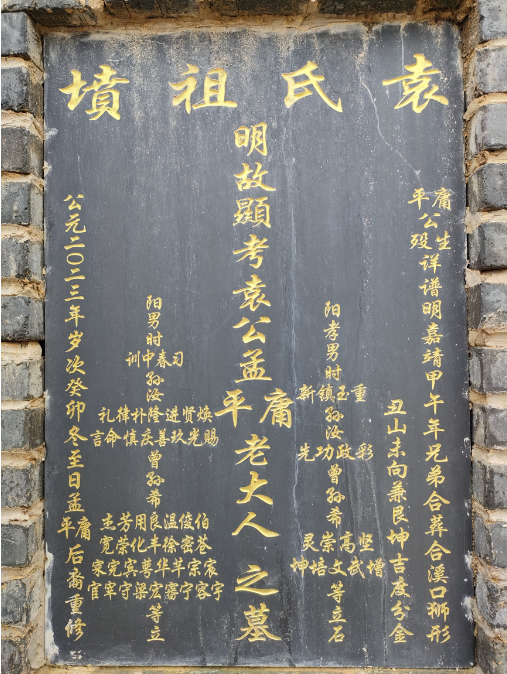 袁氏祖墳
庸平公生殁详谱明嘉靖甲午年兄弟合葬合溪口狮形
丑山未向兼艮坤吉度分金
阳孝男时重玉镇新孙汝彩政功先曾孙希坚高崇灵增武文培坤等立石
明故顯考袁公孟庸平老大人之墓
阳男时习春中训孙汝焕贤进隆朴律礼赐光玖善庆慎命言曾孙希伯俊温良用芳杰苍密徐丰化荣宽宸宗华宾宪宋宇容宁宏梁守军官等立
公元二〇二三年岁次癸卯冬至日孟庸平后裔重修